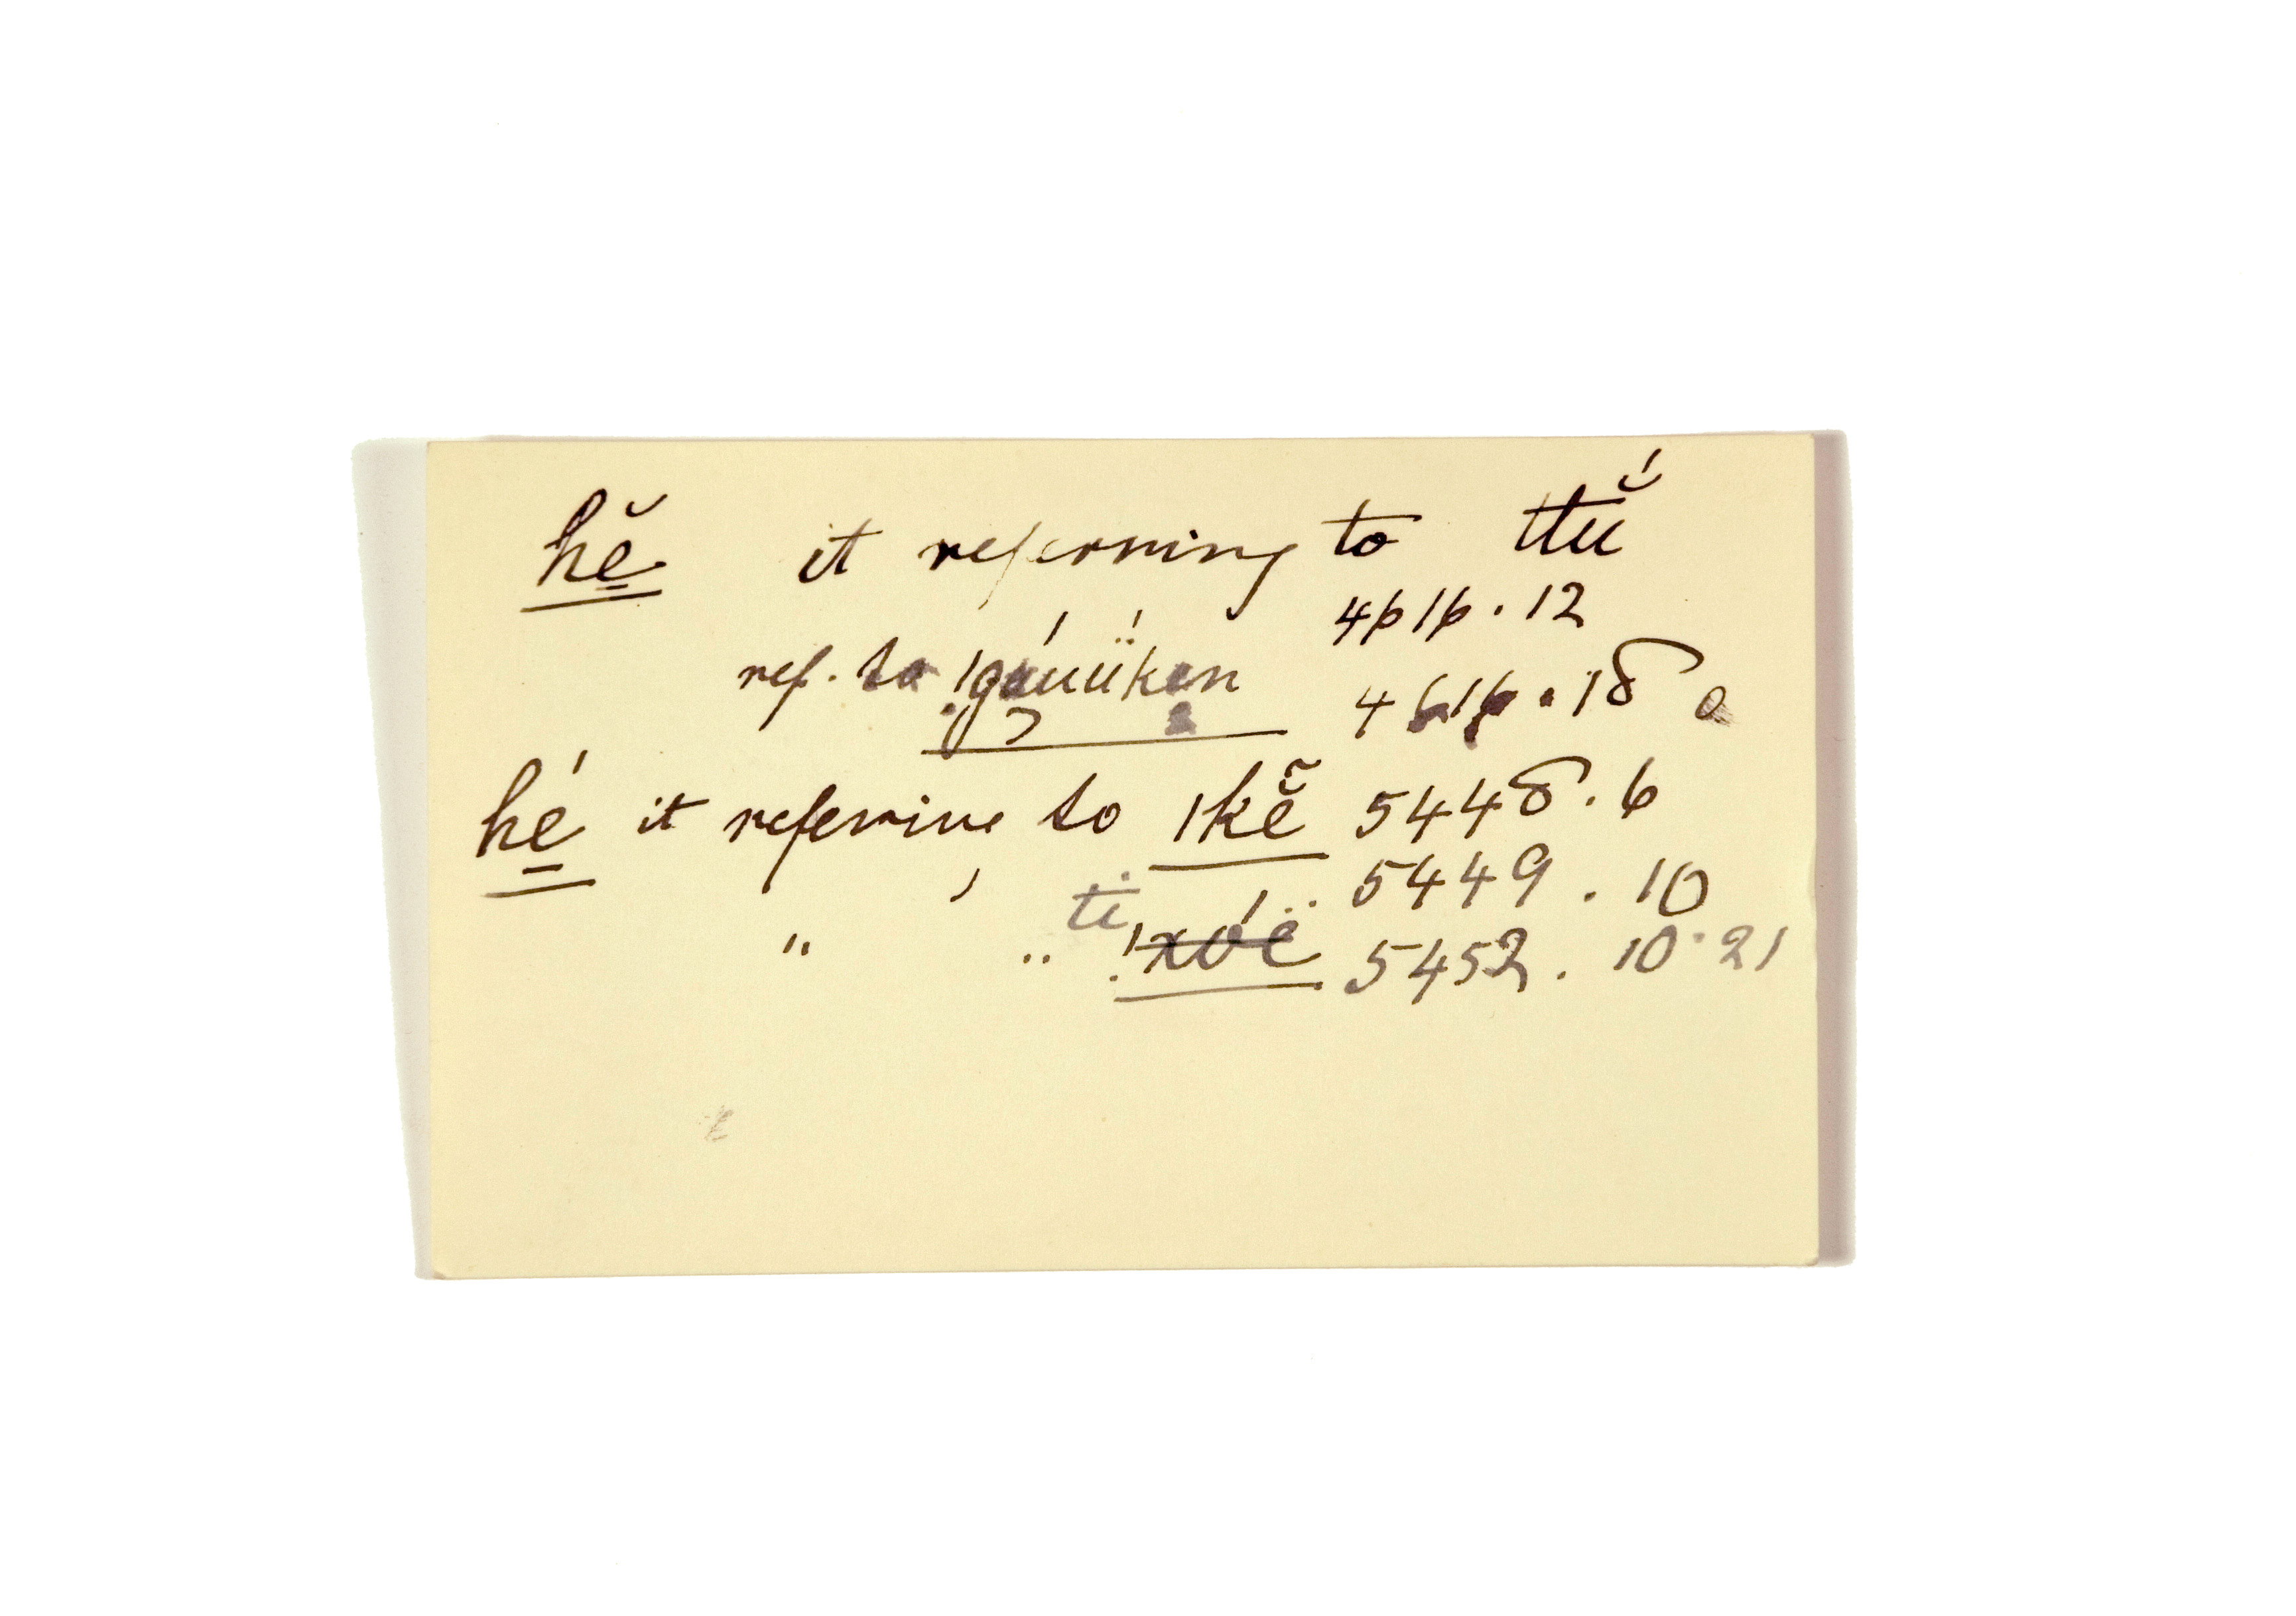 hĕ it referring to ttŭ́
4616.12
ref. to 4616.18
hé it referring to |kẽ̆ 5448.6
5449.10
" " ti 5452.10.21